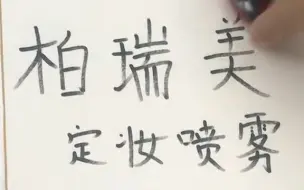 柏瑞美
定妆喷雾